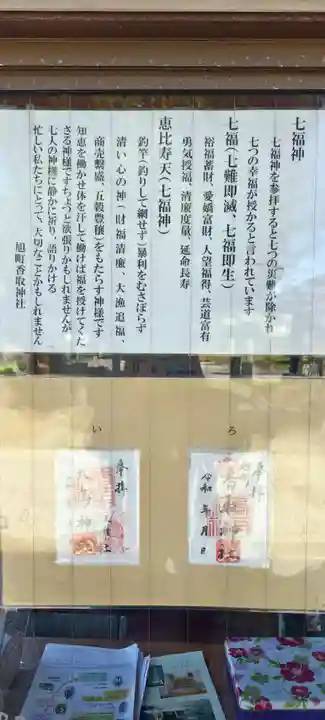 七福神
七福神を参拝すると七つの災難が除かれ
七つの幸福が授かると言われています
七福(七難即滅、七福即生)
裕福蓄財、愛嬌富財、人望福得、芸道富有
勇気授福、清廉度量、延命長寿
恵比寿天(七福神)
釣竿(釣りして網せず)暴利をむさぼらず
清い心の神(財福清廉、大漁追福、
商売繫盛、五穀豊穣)をもたらす神様です
知恵を働かせ体を汗して働けば福を授けてくだ
さる神様ですちょっと欲張りかもしれませんが
七人の神様に静かに祈り、語りかける
忙しい私たちにとって、大切なことかもしれません
旭町香取神社
ろ
奉拝
香取神社
令和 年 月 日
い
奉拝